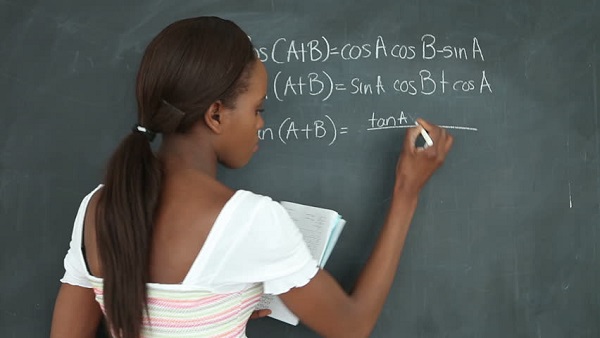 os (A+B)=cosA cos B-sinA
(A+B)= sinA cosB+cosA
an (A+B)= tanA